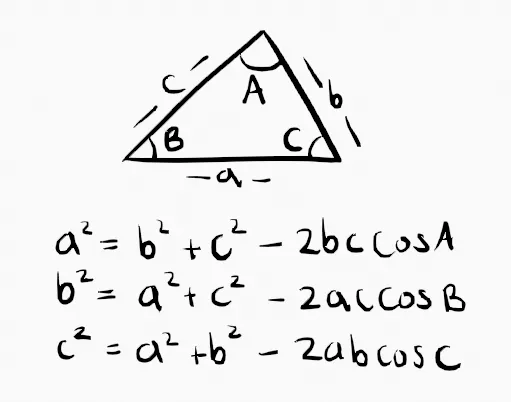 A
c
b
B
C
a
a² = b² + c² - 2bc cos A
b² = a² + c² - 2ac cos B
c² = a² + b² - 2ab cos C